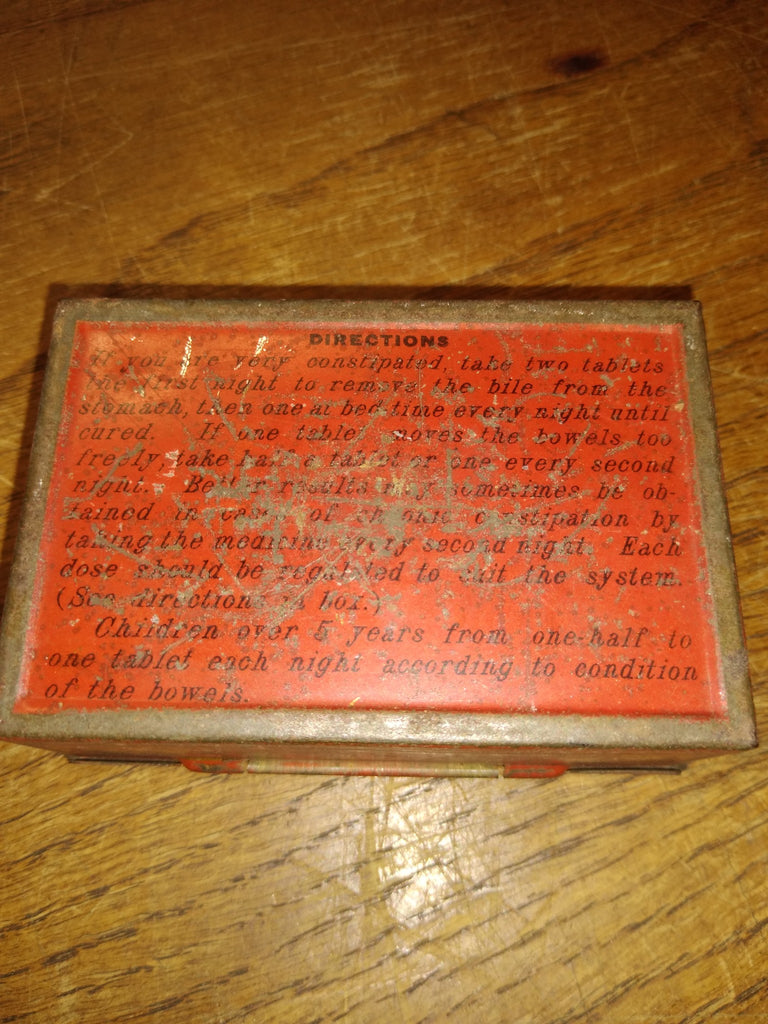 DIRECTIONS
If you are very constipated, take two tablets
the first night to remove the bile from the
stomach, then one at bed-time every night until
cured. If one tablet moves the bowels too
freely, take half a tablet or one every second
night. Better results may sometimes be ob-
tained in cases of chronic constipation by
taking the medicine every second night. Each
dose should be regulated to suit the system.
(See directions in box.)
Children over 5 years from one-half to
one tablet each night according to condition
of the bowels.